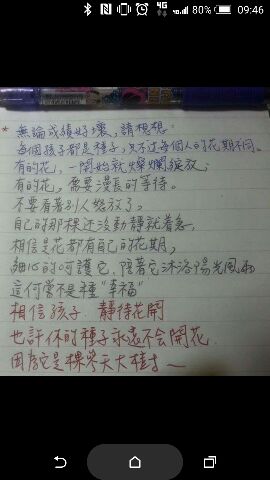 4G 80% 09:46
* 無論成績好壞，請想想：
每個孩子都是種子，只不過每個人的花期不同。
有的花，一開始就燦爛綻放；
有的花，需要漫長的等待。
不要看著別人綻放了，
自己的那棵还沒動靜就着急，
相信是花都有自己的花期，
細心的呵護它，陪著它沐浴陽光風雨
這何嘗不是種"幸福"
相信孩子．靜待花開
也許你的種子永遠不會開花．
因為它是棵參天大樹～